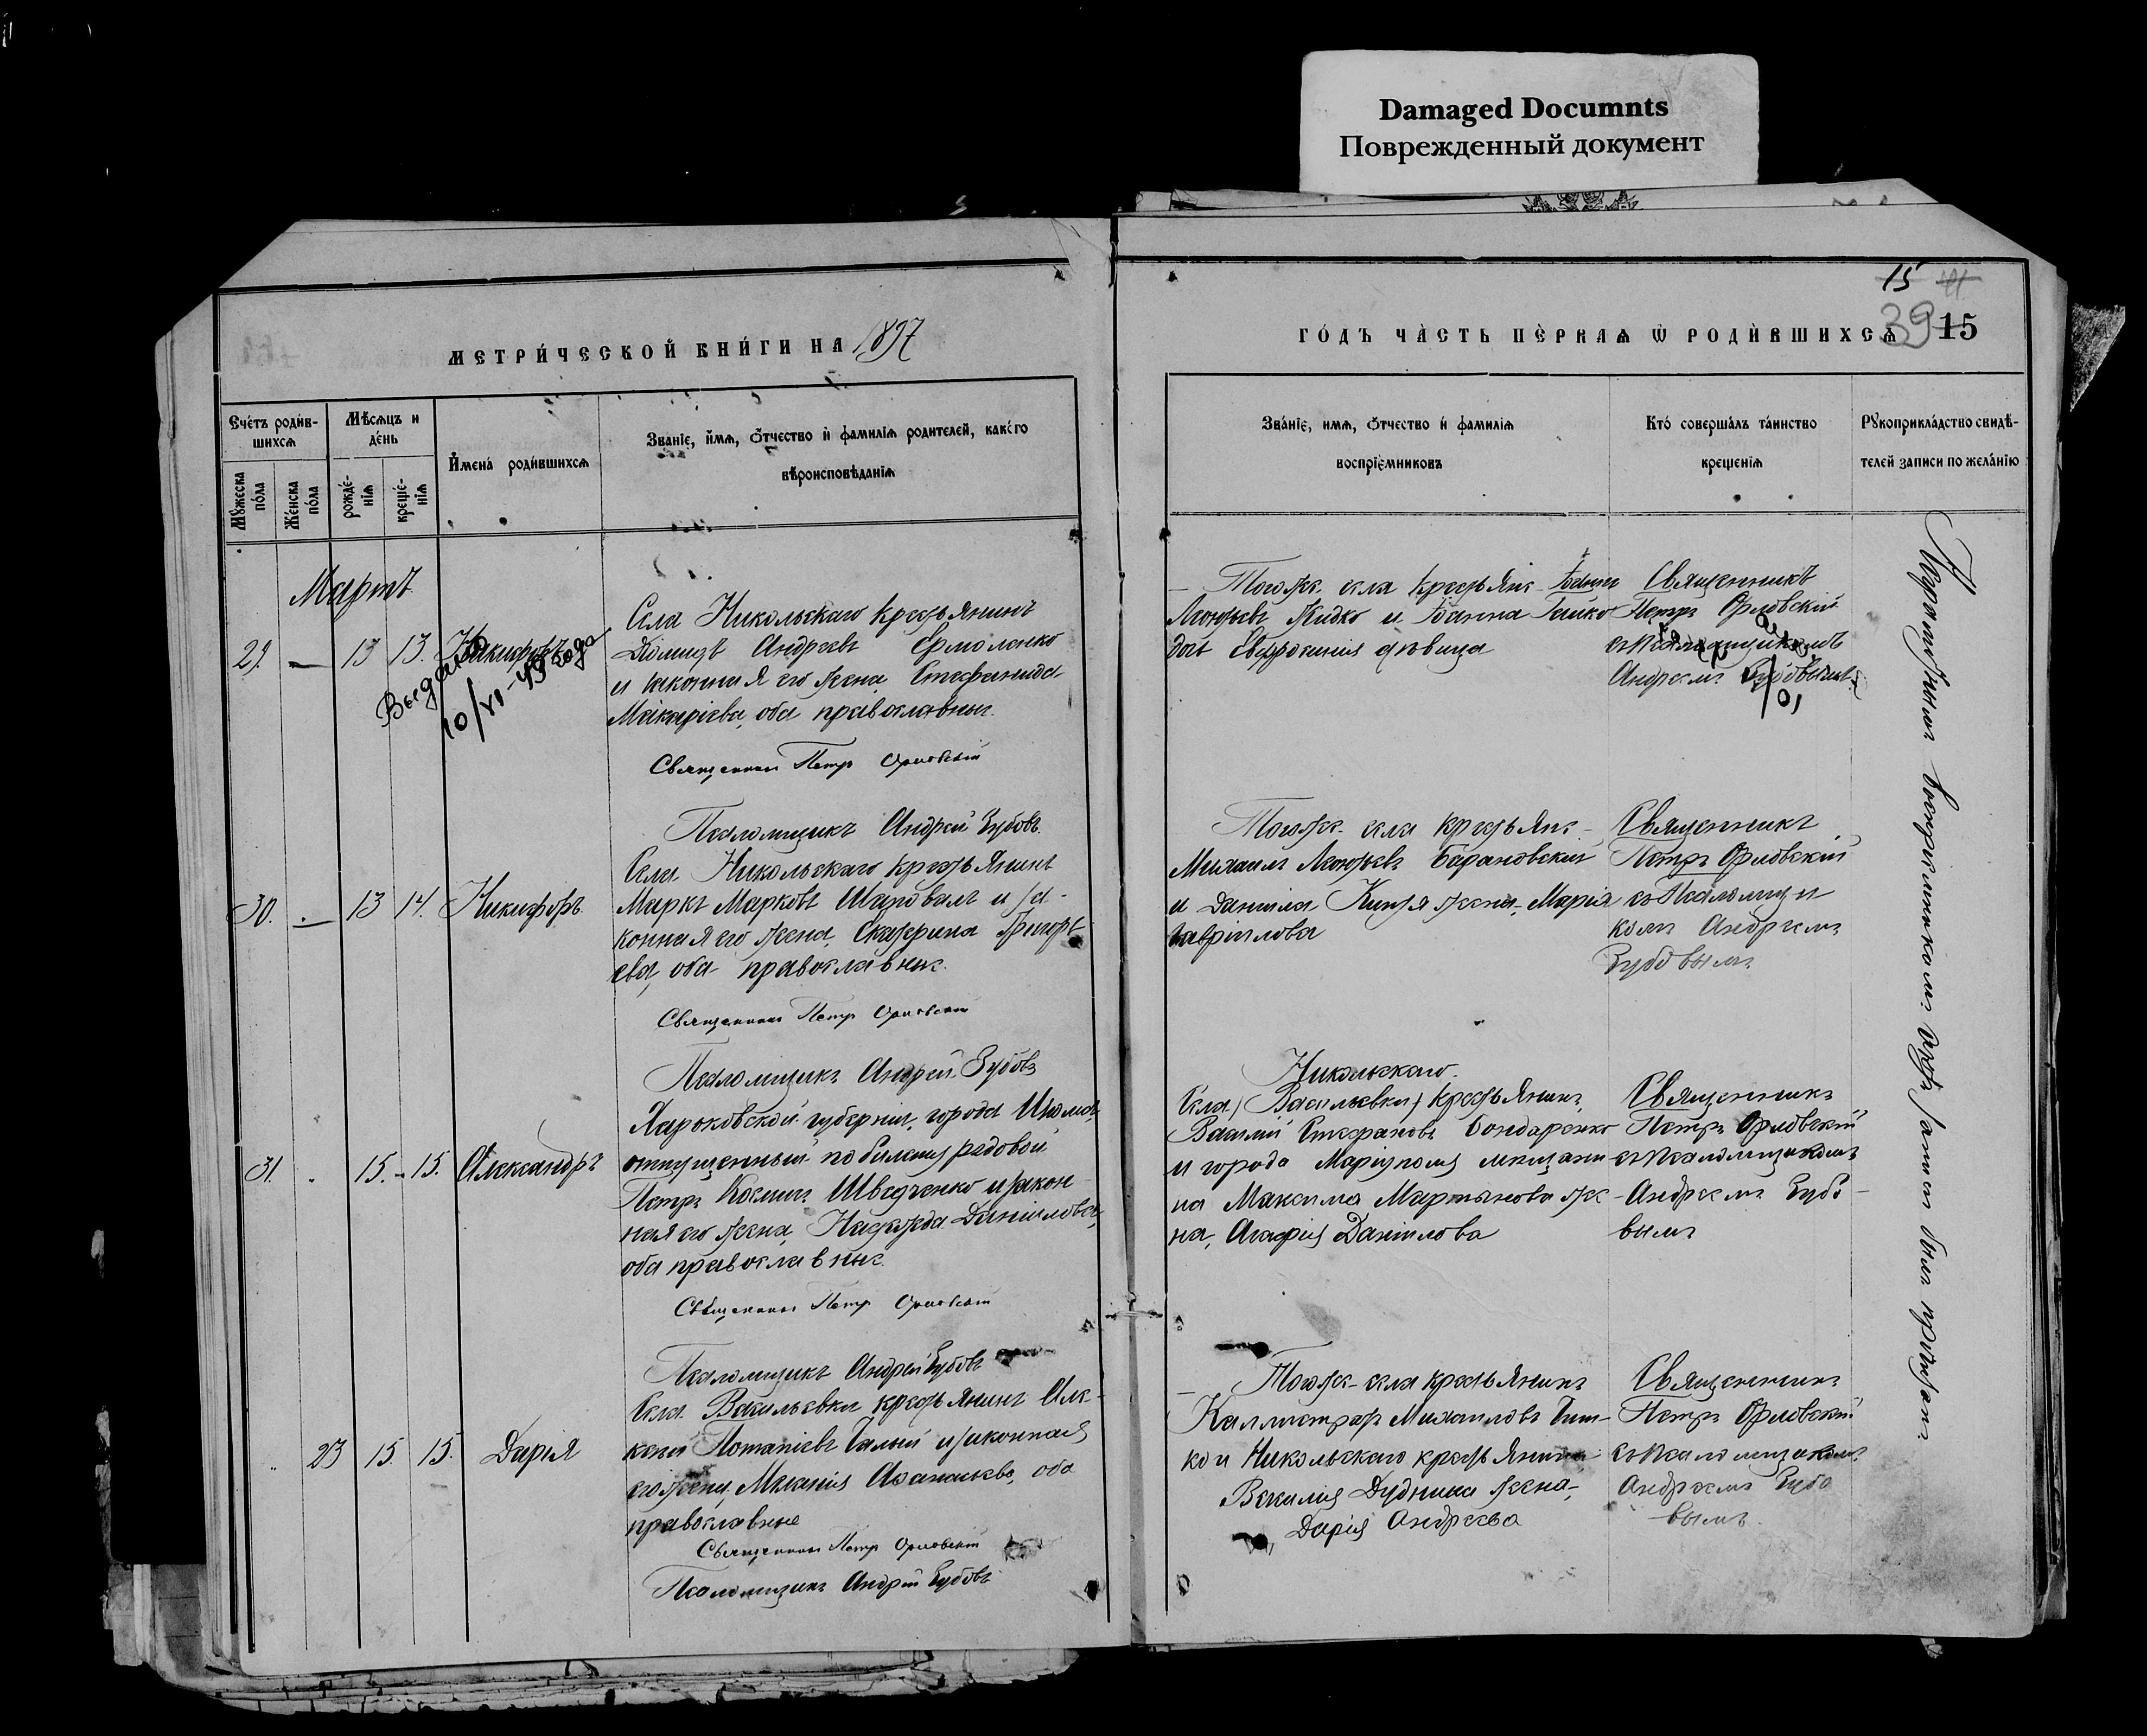 Damaged Documnts
Поврежденный документ
15
39 15
МЕТРИ́ЧЕСКОЙ КНИ́ГИ НА 1897
ГО́ДЪ ЧА̀СТЬ ПЕ́РВАѦ Ѡ РОДИ́ВШИХСѦ
Сче́тъ роди́в-
шихсѧ
Мѣ́сѧцъ и
де́нь
Мꙋ́жеска
по́ла
Же́нска
по́ла
рожде́-
нїѧ
креще́-
нїѧ
И҆мена̀ роди́вшихсѧ
Зва́нїе, и҆́мѧ, ѻ҆́тчество и҆ фамилїѧ родителей, како́го
вѣроисповѣданїѧ
Зва́нїе, имѧ, ѻ҆́тчество и҆ фамилїѧ
воспрїе́мниковъ
Кто̀ соверша́лъ та́инство
креще́нїѧ
Рꙋкоприкла́дство свидѣ́-
телей записи по жела́нїю
Мартъ
29. — 13 13. Никифоръ
Выдано
10/VI-49 года
Села Никольскаго крестьянинъ
Діомидъ Андреевъ Ермоленко
и законная его жена Стефанида
Макаріева, оба православные.
Священникъ Петръ Орловскій
Псаломщикъ Андрей Зубовъ.
Тогоже села крестьяне
Леонтьевъ Жидко и Іоанна
Евфросинія дѣвица
Священникъ
Петръ Орловскій
съ псаломщикомъ
Андреемъ Зубовымъ
30. — 13 14. Никифоръ.
Села Никольскаго крестьянинъ
Маркъ Марковъ Шаповалъ и за-
конная его жена, Екатерина Григорь-
ева, оба православные.
Священникъ Петръ Орловскій
Псаломщикъ Андрей Зубовъ
Тогоже села крестьяне
Михаилъ Леонтьевъ Барановскій
и Даніила жена, Марія
Гавріилова
Священникъ
Петръ Орловскій
съ Псаломщи
комъ Андреемъ
Зубовымъ
31. 15. 15. Александръ
Харьковской губерніи, города
отпущенный по билету рядовой
Петръ Косминъ Шведченко и закон
ная его жена, Надежда Даніилова,
оба православные.
Священникъ Петръ Орловскій
Псаломщикъ Андрей Зубовъ
Никольскаго
Села (Васильевки) крестьянинъ
Василій Стефановъ Бондаренко
и города Маріуполя мещани
на Максима Мартынова же
на, Агафія Даніилова
Священникъ
Петръ Орловскій
съ псаломщикомъ
Андреемъ Зубо
вымъ
23 15. 15. Дарія
Села Васильевки крестьянинъ Але-
ксѣй Потапіевъ Галый и законная
его жена, Меланія Афанасьева, оба
православные
Священникъ Петръ Орловскій
Псаломщикъ Андрей Зубовъ
Тогоже села крестьянинъ
Каллистратъ Михаиловъ
ко и Никольскаго крестьянина
Василія Дудника жена,
Дарія Андреева
Священникъ
Петръ Орловскій
съ псаломщикомъ
Андреемъ Зубо
вымъ.